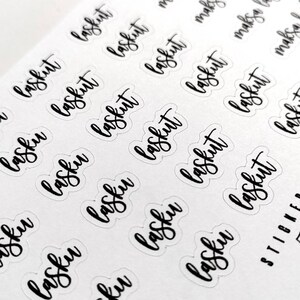 maksa
maksa
maksa
laskut
laskut
laskut
laskut
laskut
laskut
laskut
laskut
laskut
lasku
lasku
lasku
lasku
lasku
lasku
lasku
lasku
STICKER